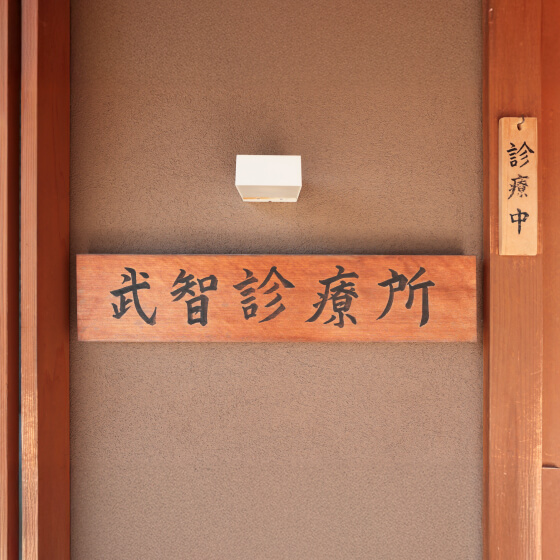 武智診療所
診療中